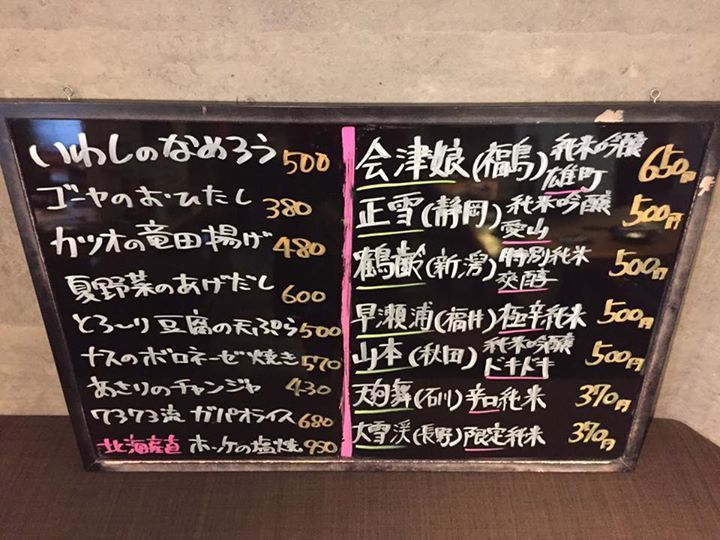 いわしのなめろう 500
ゴーヤのおひたし 380
カツオの竜田揚げ 480
夏野菜のあげだし 600
とろ〜り豆腐の天ぷら 500
ナスのボロネーゼ焼き 570
あさりのチャンジャ 430
ワヌワヌ流 ガパオライス 680
北海産直 ホッケの塩焼 950
会津娘(福島) 純米吟醸 雄町 650円
正雪(静岡) 純米吟醸 愛山 500円
鶴齢(新潟) 特別純米 爽醇 500円
早瀬浦(福井) 極辛純米 500円
山本(秋田) 純米吟醸 ドキドキ 500円
天狗舞(石川) 辛口純米 370円
大雪渓(長野) 限定純米 370円